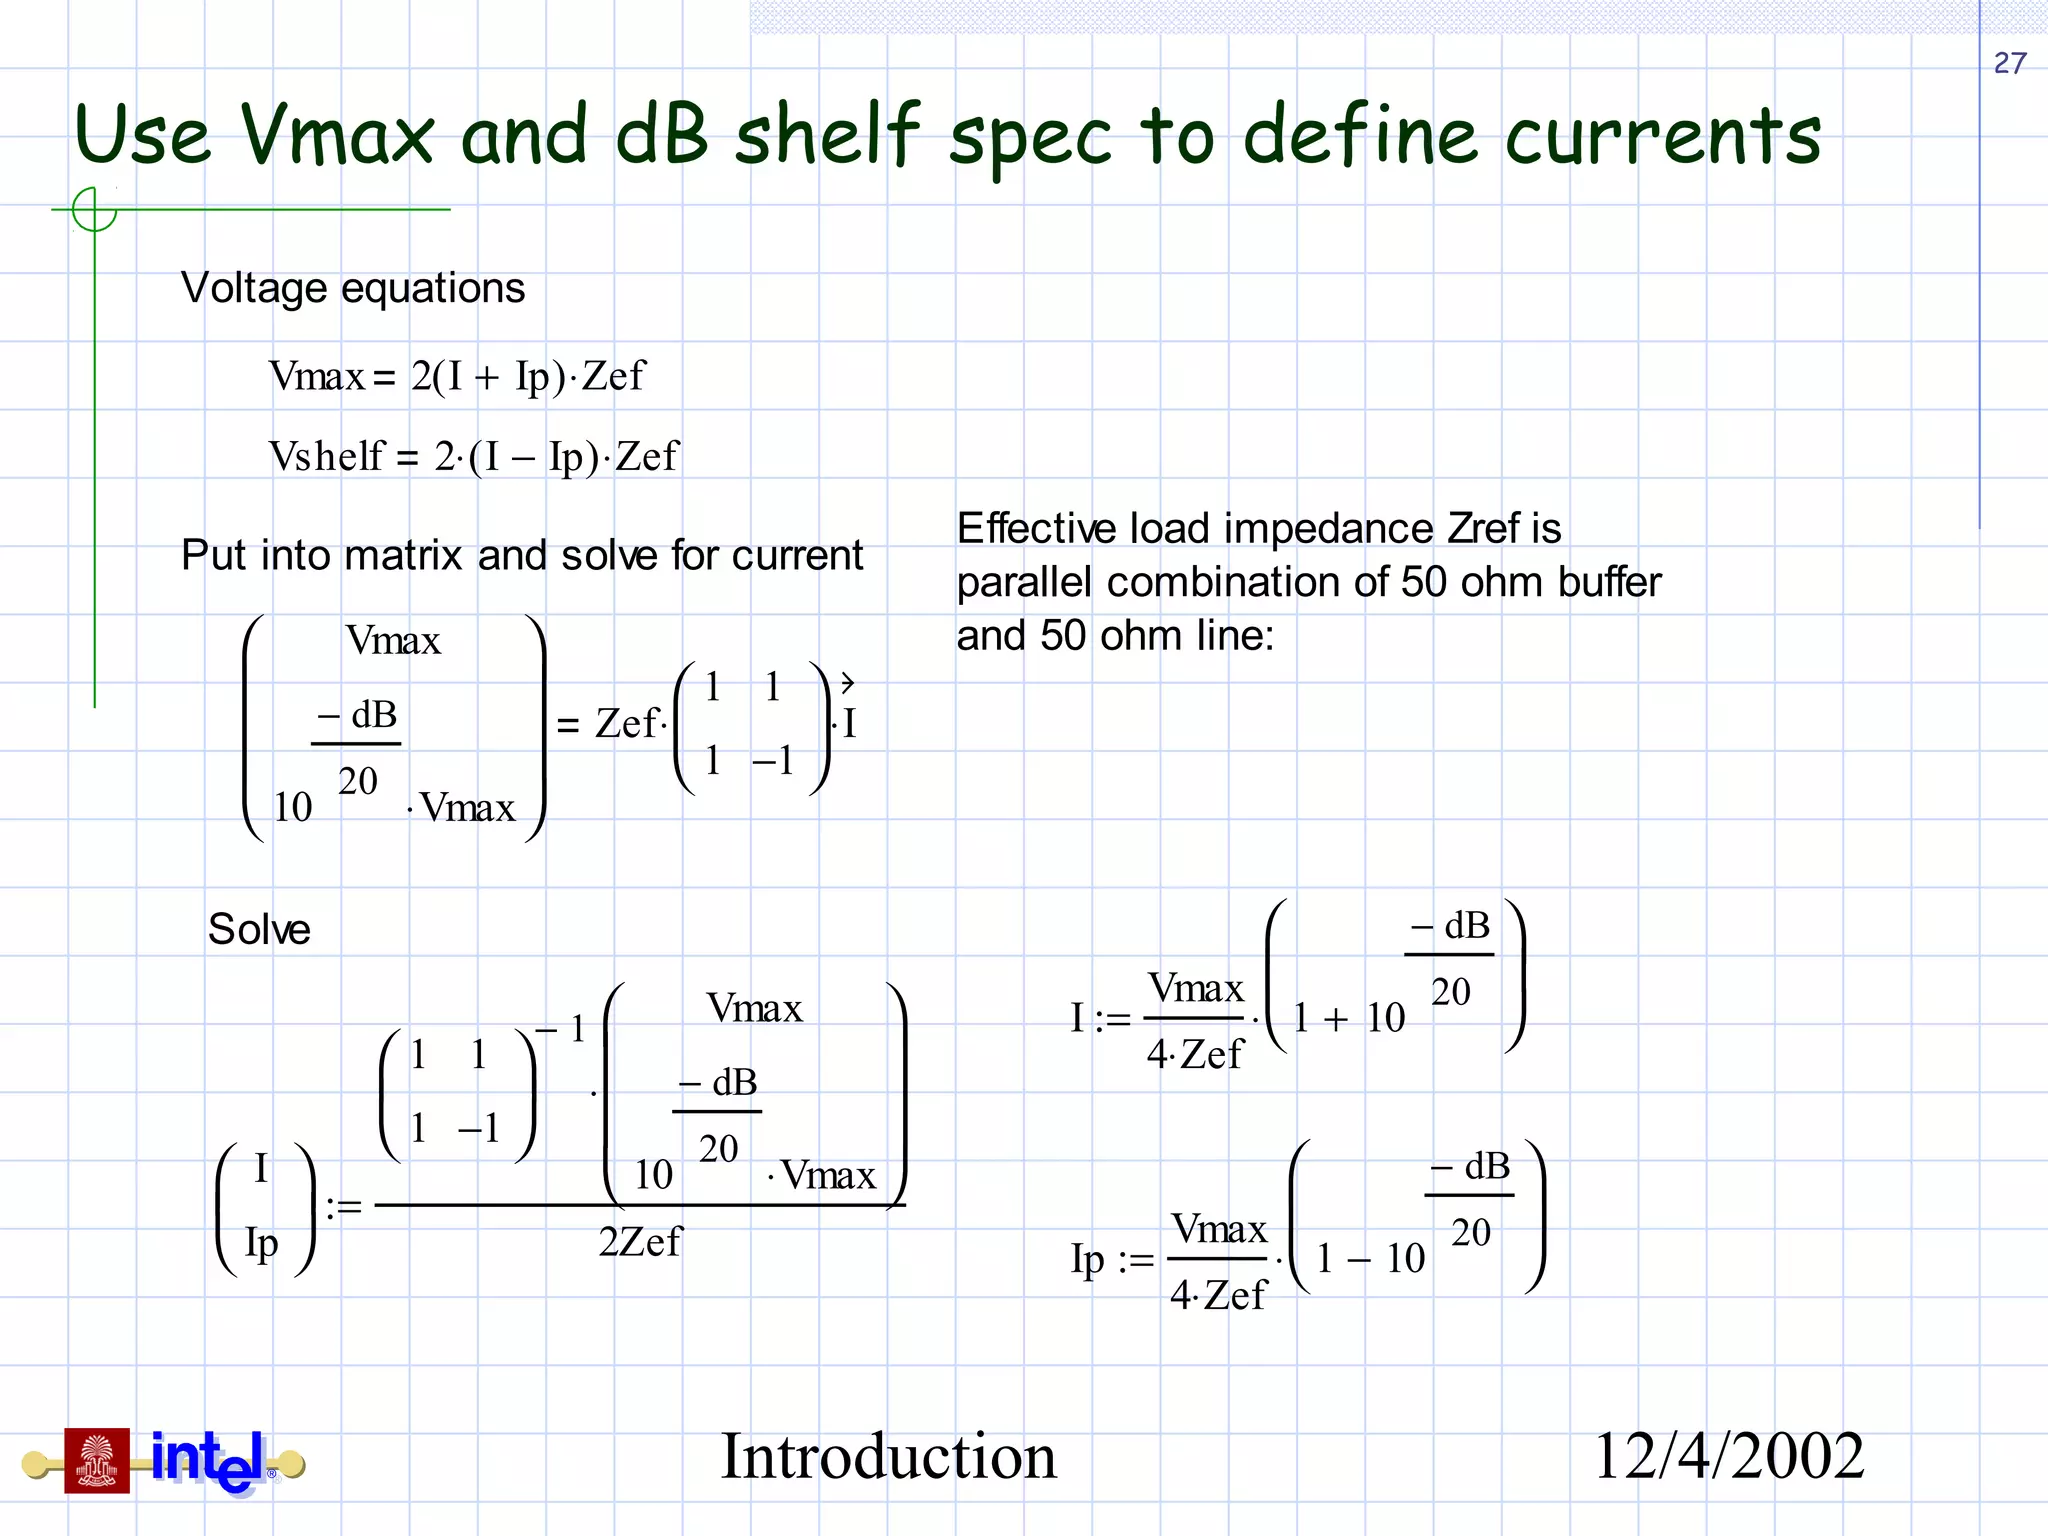 27
Use Vmax and dB shelf spec to define currents
Voltage equations
Vmax = 2(I + Ip)·Zef
Vshelf = 2·(I − Ip)·Zef
Put into matrix and solve for current
Vmax
− dB
20
10 ·Vmax
= Zef·
1 1
1 −1
·I
Effective load impedance Zref is
parallel combination of 50 ohm buffer
and 50 ohm line:
Solve
I
Ip
:=
1 1
1 −1
− 1
·
Vmax
− dB
20
10 ·Vmax
2Zef
I := Vmax
4·Zef
· 1 + 10
− dB
20
Ip := Vmax
4·Zef
· 1 − 10
− dB
20
intel®
Introduction
12/4/2002